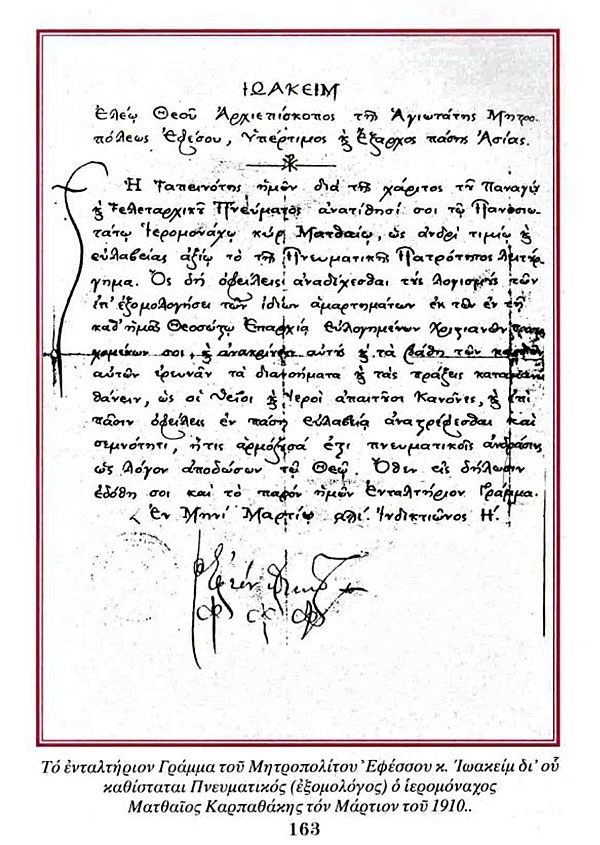 ΙΩΑΚΕΙΜ
Ἐλέῳ Θεοῦ Ἀρχιεπίσκοπος τῆς Ἁγιωτάτης Μητρο-
πόλεως Ἐφέσου, Ὑπέρτιμος ϗ Ἔξαρχος πάσης Ἀσίας.
Ἡ Ταπεινότης ἡμῶν διὰ τῆς χάριτος τοῦ Παναγίου
ϗ Τελεταρχικοῦ Πνεύματος ἀνατίθησί σοι τῷ Πανοσιω-
τάτῳ Ἱερομονάχῳ κυρ Ματθαίῳ, ὡς ἀνδρὶ τιμίῳ ϗ
εὐλαβείας ἀξίῳ τὸ τῆς Πνευματικῆς Πατρότητος λειτούρ-
γημα. Ὃς δὴ ὀφείλεις ἀναδέχεσθαι τοὺς λογισμοὺς τῶν
ἐπ' ἐξομολογήσει τῶν ἰδίων ἁμαρτημάτων ἐκ τῶν ἐν τῇ
καθ' ἡμᾶς Θεοσώστῳ Ἐπαρχίᾳ εὐλογημένων Χριστιανῶν
σοι, ϗ ἀνακρίνειν αὐτοὺς ϗ τὰ βάθη τῶν
αὐτῶν ἐρευνᾶν τὰ διανοήματα ϗ τὰς πράξεις καταμαν-
θάνειν, ὡς οἱ Θεῖοι ϗ Ἱεροὶ ἀπαιτοῦσι Κανόνες, ϗ ἐπὶ
πᾶσιν ὀφείλεις ἐν πάσῃ εὐλαβείᾳ ἀναστρέφεσθαι καὶ
σεμνότητι, ἥτις ἁρμόζουσά ἐστι πνευματικοῖς ἀνδράσιν,
ὡς λόγον ἀποδώσων τῷ Θεῷ. Ὅθεν εἰς δήλωσιν
ἐδόθη σοι καὶ τὸ παρὸν ἡμῶν Ἐνταλτήριον Γράμμα.
Ἐν Μηνὶ Μαρτίῳ ͵αϡι΄. Ἰνδικτιῶνος Η΄.
Τό ἐνταλτήριον Γράμμα τοῦ Μητροπολίτου Ἐφέσσου κ. Ἰωακείμ δι' οὗ
καθίσταται Πνευματικός (ἐξομολόγος) ὁ ἱερομόναχος
Ματθαῖος Καρπαθάκης τόν Μάρτιον τοῦ 1910..
163